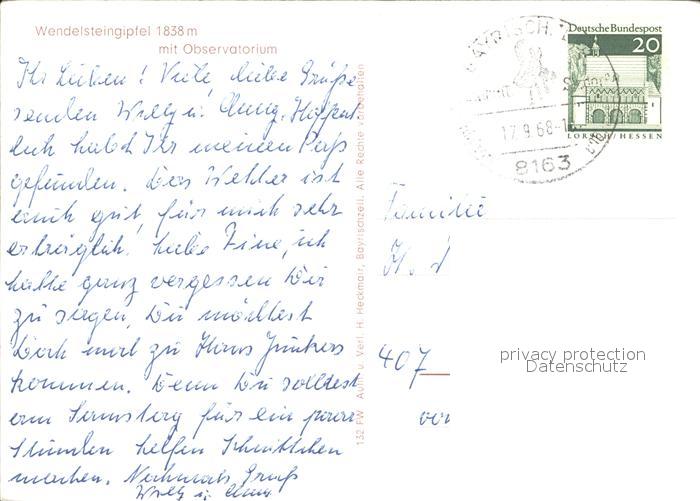 Wendelsteingipfel 1838 m
mit Observatorium
Ihr Lieben! Viele liebe Grüße
senden Willy u. Anny. Hoffent
lich habt Ihr meinen Paß
gefunden. Das Wetter ist
auch gut, für mich sehr
erträglich. Liebe Fine, ich
hatte ganz vergessen Dir
zu sagen, Du möchtest
Doch mal zu Hans Junkers
kommen. Denn Du solltest
am Samstag für ein paar
Stunden helfen Schnittchen
machen. Nochmals Gruß
Willy u. Anny
132 FW Aufn. u. Verl. H. Heckmair, Bayrischzell. Alle Rechte vorbehalten
BAYRISCHZELL
17.9.68-
8163
Deutsche Bundespost
20
LORSCH / HESSEN
Familie
H
407
privacy protection
Datenschutz